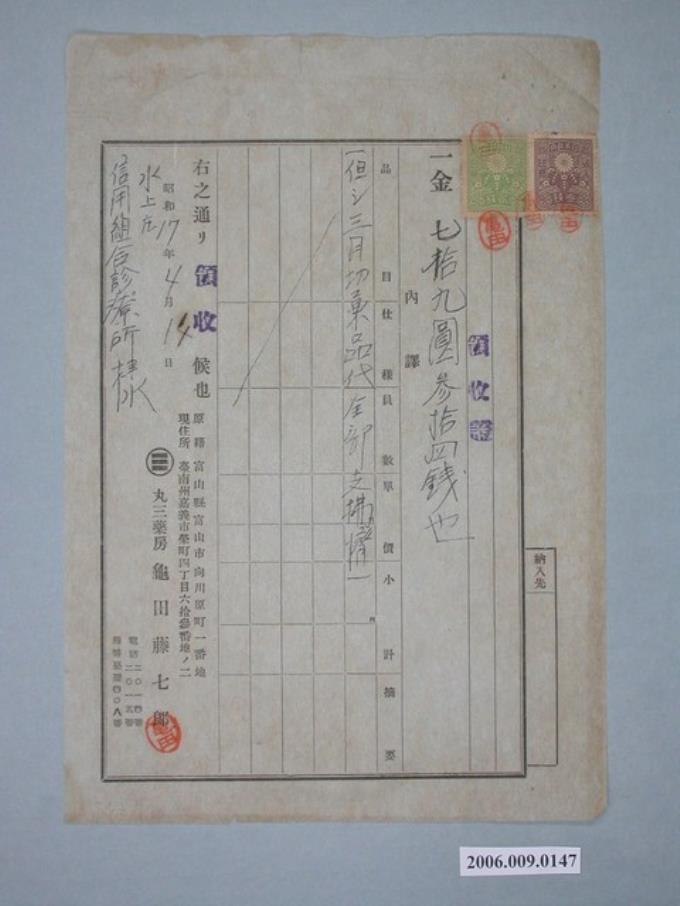 納入先
領收
一金 七拾九圓參拾四錢也
內譯
品目 仕樣 員數 單價 小計 摘要
一但シ三月切薬品代全部支拂濟一
右之通リ領收候也
昭和17年4月14日
水上庄
信用組合診療所 様
原籍 富山縣富山市向川原町一番地
現住所 臺南州嘉義市榮町四丁目六拾參番地ノ二
丸三藥房 龜田藤七郎
龜田
2006.009.0147